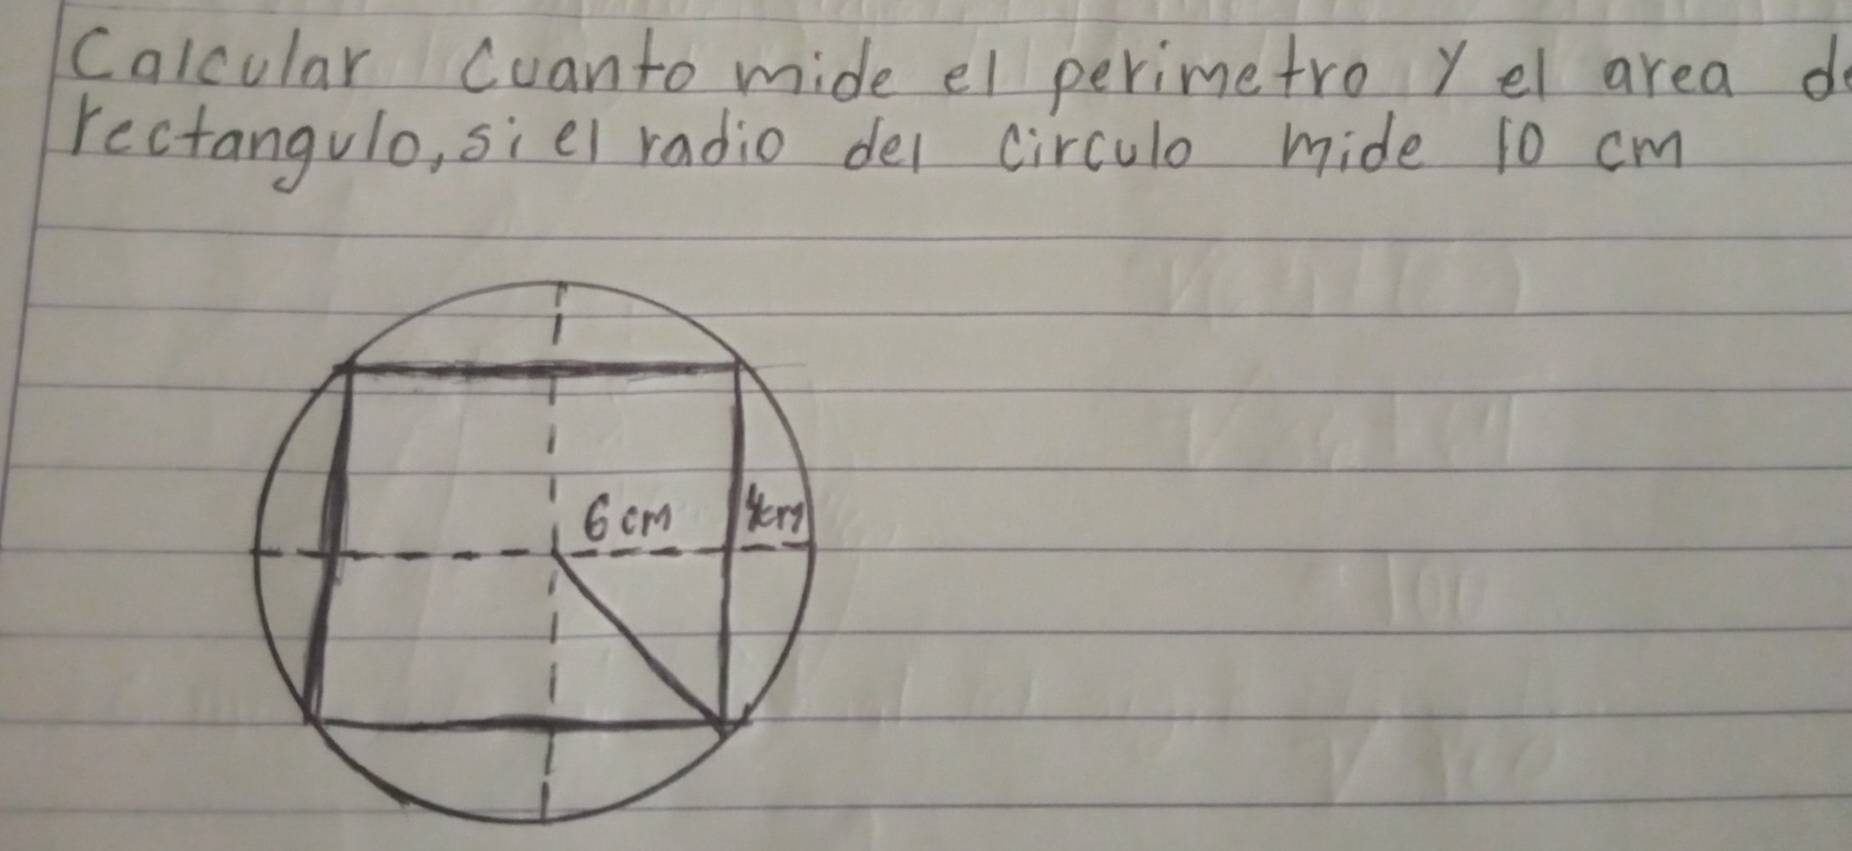 Calcular Cuanto mide el perimetro y el area d
rectangulo, si el radio del circulo mide 10 cm
6 cm
4cm